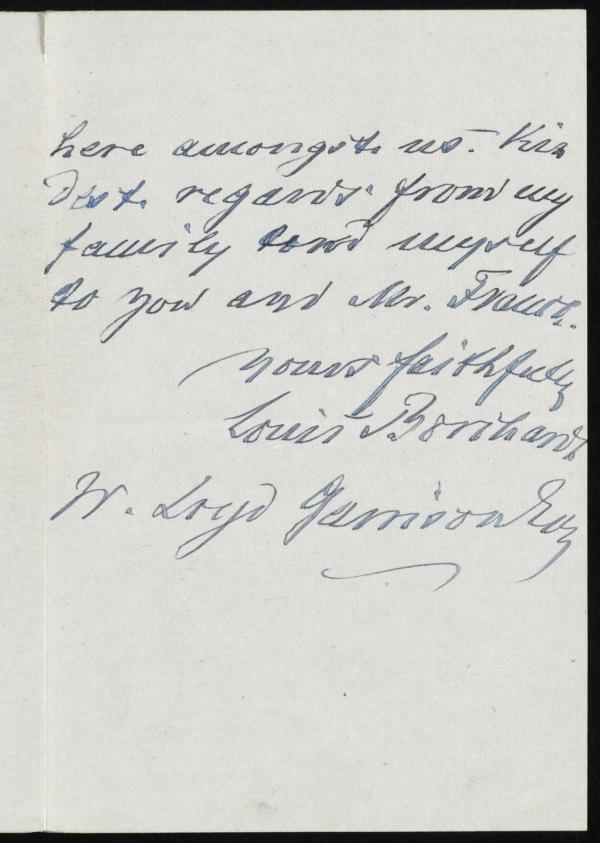 here amongst us. Kin
dest. regards from my
family and myself
to you and Mr. Franck.
Yours faithfully
Louis Borchardt
W. Loyd Garrison Esq